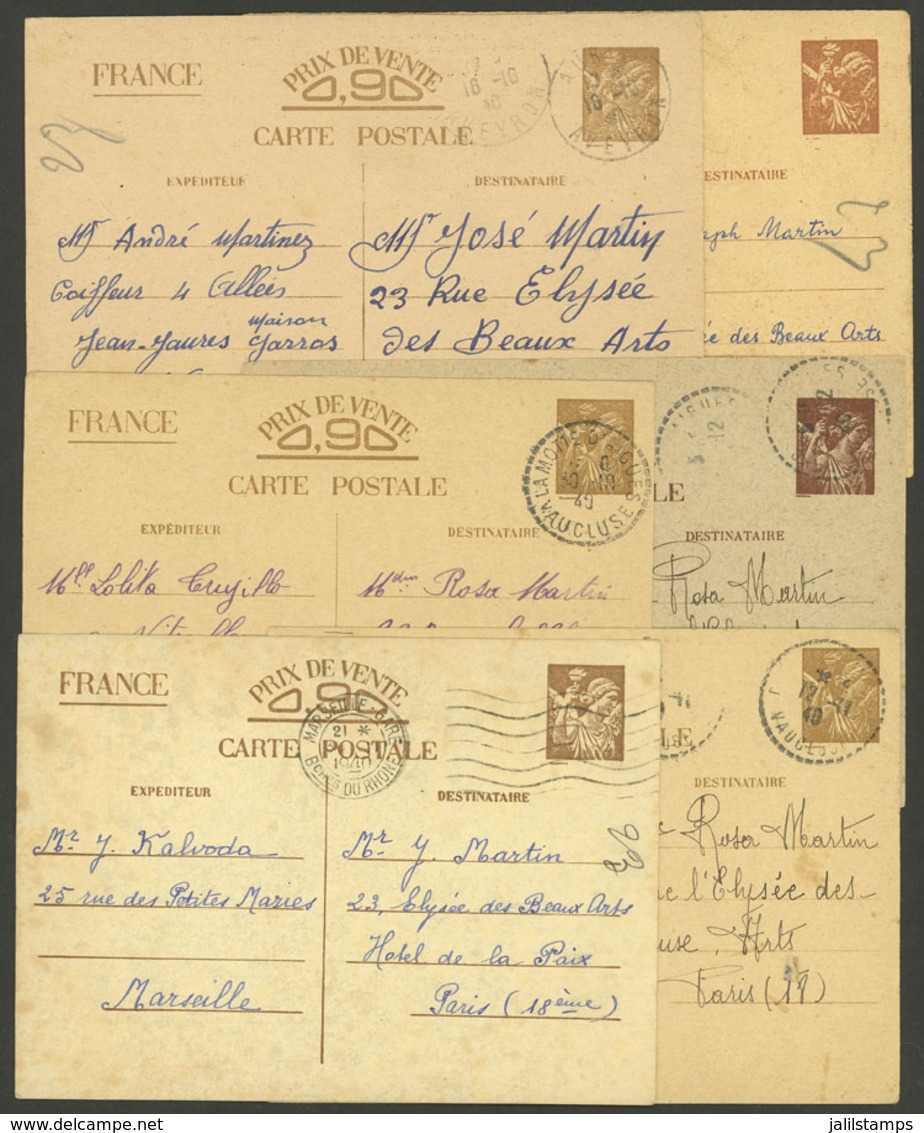 FRANCE
PRIX DE VENTE
0,90
CARTE POSTALE
EXPÉDITEUR
DESTINATAIRE
16 -10
AVEYRON
16 -10
AVEYRON
Mr André Martinez
Coiffeur 4 Allées
Jean-Jaures Maison Garros
Mr José Martin
23 Rue Elysée
des Beaux Arts
ESTINATAIRE
eph Martin
ée des Beaux Arts
FRANCE
PRIX DE VENTE
0,90
CARTE POSTALE
EXPÉDITEUR
DESTINATAIRE
LA MOTTE D'AIGUES
30 -10
40
VAUCLUSE
Mlle Lolita Trujillo
Mdm Rosa Martin
LE
DESTINATAIRE
Rosa Martin
FRANCE
PRIX DE VENTE
0,90
CARTE POSTALE
EXPÉDITEUR
DESTINATAIRE
MARSEILLE-GARE
21 *
1940
BCHES DU RHONE
Mr. J. Kalvoda
25 rue des Petites Maries
Marseille
Mr. J. Martin
23, Elysée des Beaux Arts
Hotel de la Paix
Paris (18ème)
LE
VAUCLUSE
40
DESTINATAIRE
Rosa Martin
l'Elysée des-
Arts
Paris (
jalilstamps